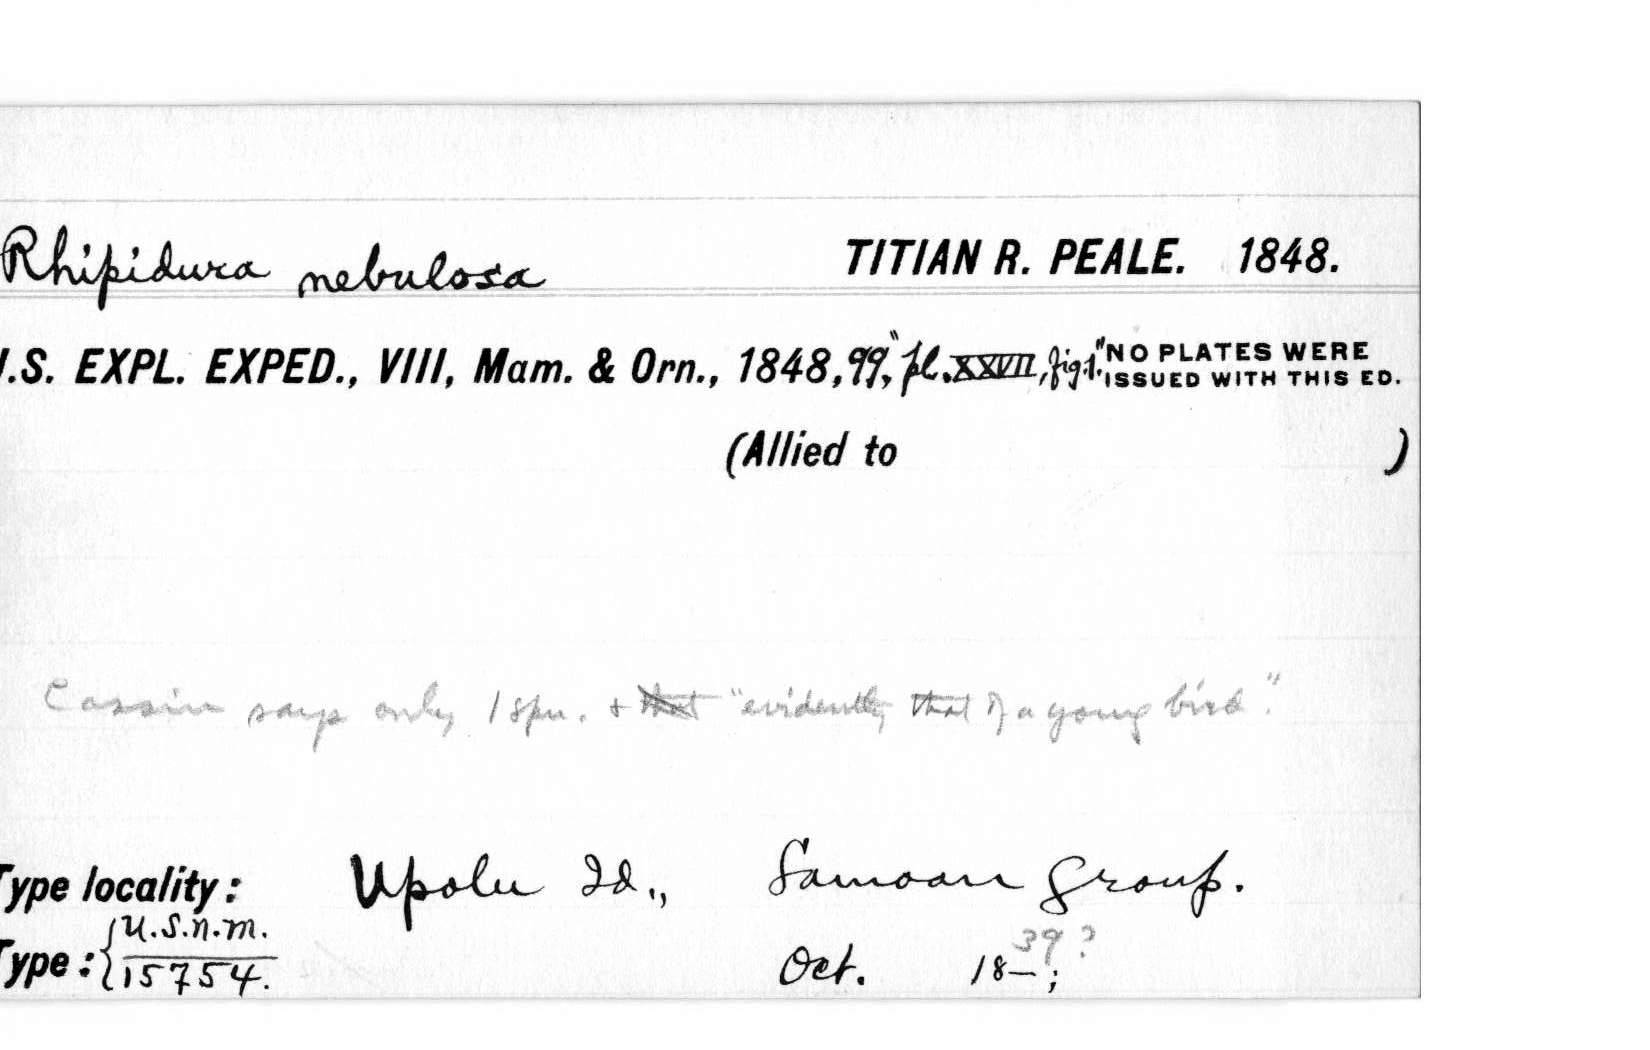 Rhipidura nebulosa TITIAN R. PEALE. 1848.
.S. EXPL. EXPED., VIII, Mam. & Orn., 1848, 99, "pl. XXVII, fig. 1." NO PLATES WERE
ISSUED WITH THIS ED.
(Allied to )
Cassin says only 1 spn. & that "evidently that of a young bird."
Type locality: Upolu Id., Samoan Group.
Type: {U.S.N.M. 39?
15754. Oct. 18—;